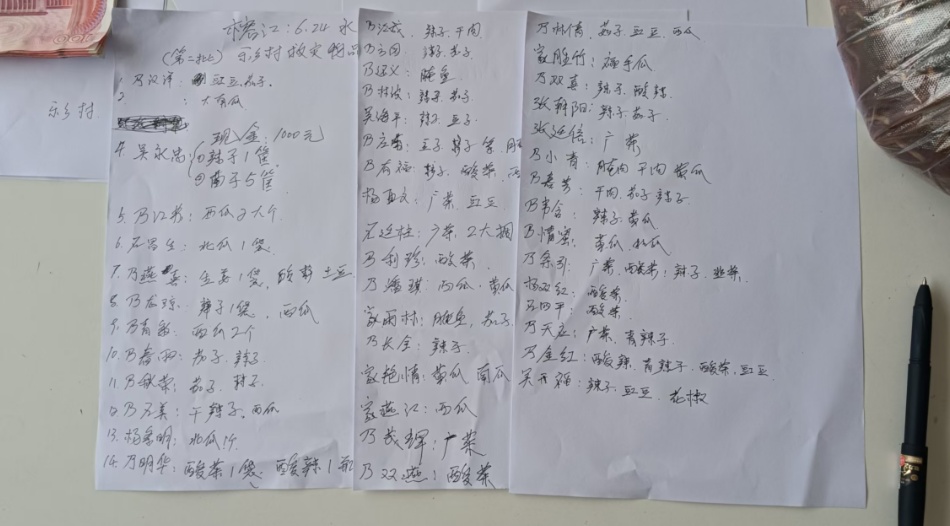 乐乡村
榕江：6.24 水
（第二批）乐乡村救灾物品
1. 乃汉洋：豇豆、茄子.
2 ：大南瓜
现金：1000元
4. 吴永尚：①辣子1筐
②茄子5筐
5. 乃江书：西瓜2大个
6. 石昌生：北瓜1袋
7. 乃燕妻：生姜1袋，酸 土豆
8. 乃石琼：辣子1袋，西瓜
9. 乃青 ：西瓜2个
10. 乃 ：茄子、辣子
11. 乃 荣：茄子、辣子
乃 美：干辣子、西瓜
13. 杨秀明：北瓜1个
14. 乃明华：酸菜1袋、酸辣1瓶
乃 ：辣子、干肉
乃 ：辣子、茄子
乃 义：腌鱼
乃林波：辣子、茄子
吴海平：辣子、豆子
乃 ：豆子、辣子
乃石福：辣子、酸菜、西
杨 文：广菜、豇豆
石延柱：广菜、2大捆
乃利珍：酸菜
乃潘琪：西瓜、黄瓜
家雨林：腌鱼、茄子
乃长全：辣子
家艳情：黄瓜 南瓜
家燕江：西瓜
乃茂辉：广菜
乃双燕：酸菜
乃 倩：茄子、豇豆、西瓜
家胜竹：福手瓜
乃双喜：辣子、酸辣
张朝阳：辣子、茄子
张延倍：广菜
乃小青：腌肉、干肉、黄瓜
乃 ：干肉、茄子、辣子
乃 ：辣子、黄瓜
乃情 ：黄瓜、北瓜
乃 ：广菜、酸菜、辣子、韭菜
杨 红：酸菜
乃 平：酸菜
乃天 ：广菜、青辣子
乃金红：酸辣、青辣子、酸菜、豇豆
吴开福：辣子、豇豆、花椒